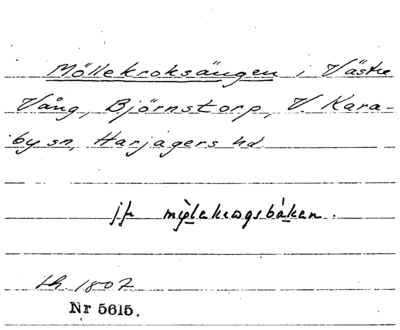 Möllekroksängen i Västre
Vång, Björnstorp, V. Kara-
by sn, Harjagers hd
jfr mɩ̀lekrɔgsbákan.
Lh 1807
Nr 5615.